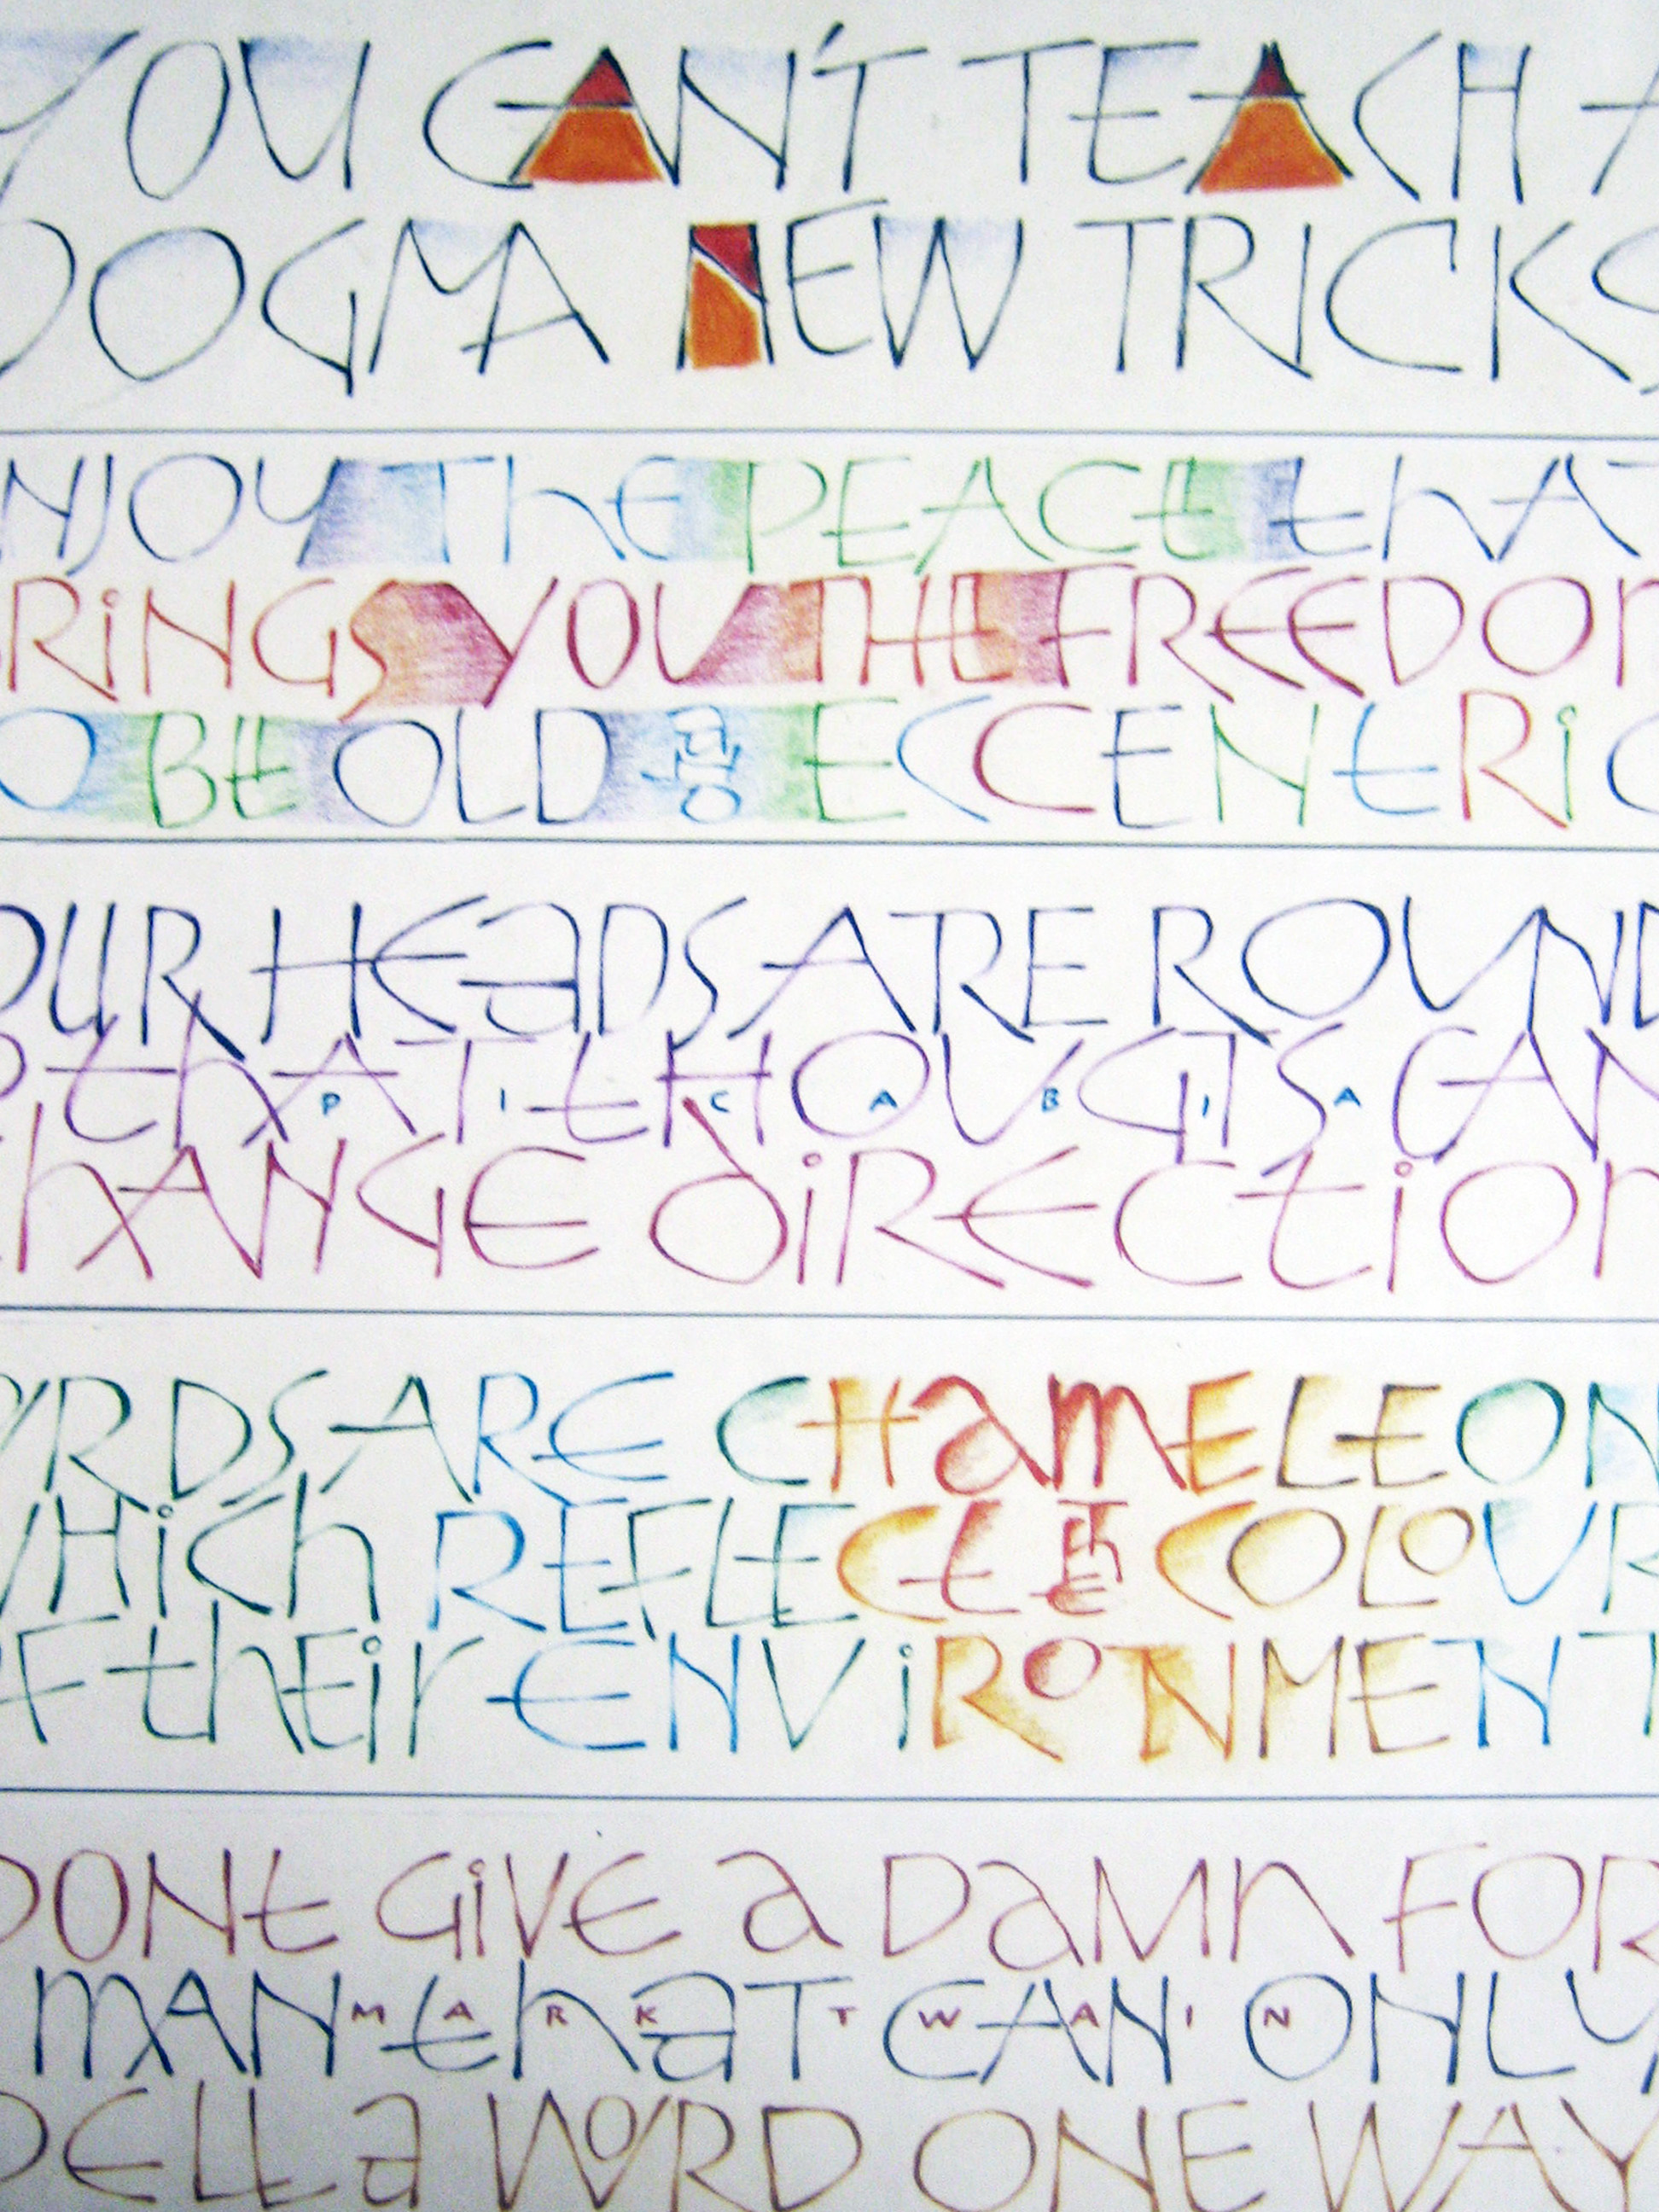 YOU CAN'T TEACH A
DOGMA NEW TRICKS
NJOY ThE PEACE thAT
RiNGS YOU THE FREEDOM
O BE OLD and ECCENtRiC
OUR HEaDS ARE ROUND
O thAT tHOUGTS CAN
PICABIA
ChANGE diRECtiOn
ORDS ARE CHamELEON
WHich REFLECt thE COLOUR
OF thEir ENViRONMENT
DONt GiVE a DaMn FOR
mAN thaT CAN ONLY
MARK TWAIN
PELL a WORD ONE WAY